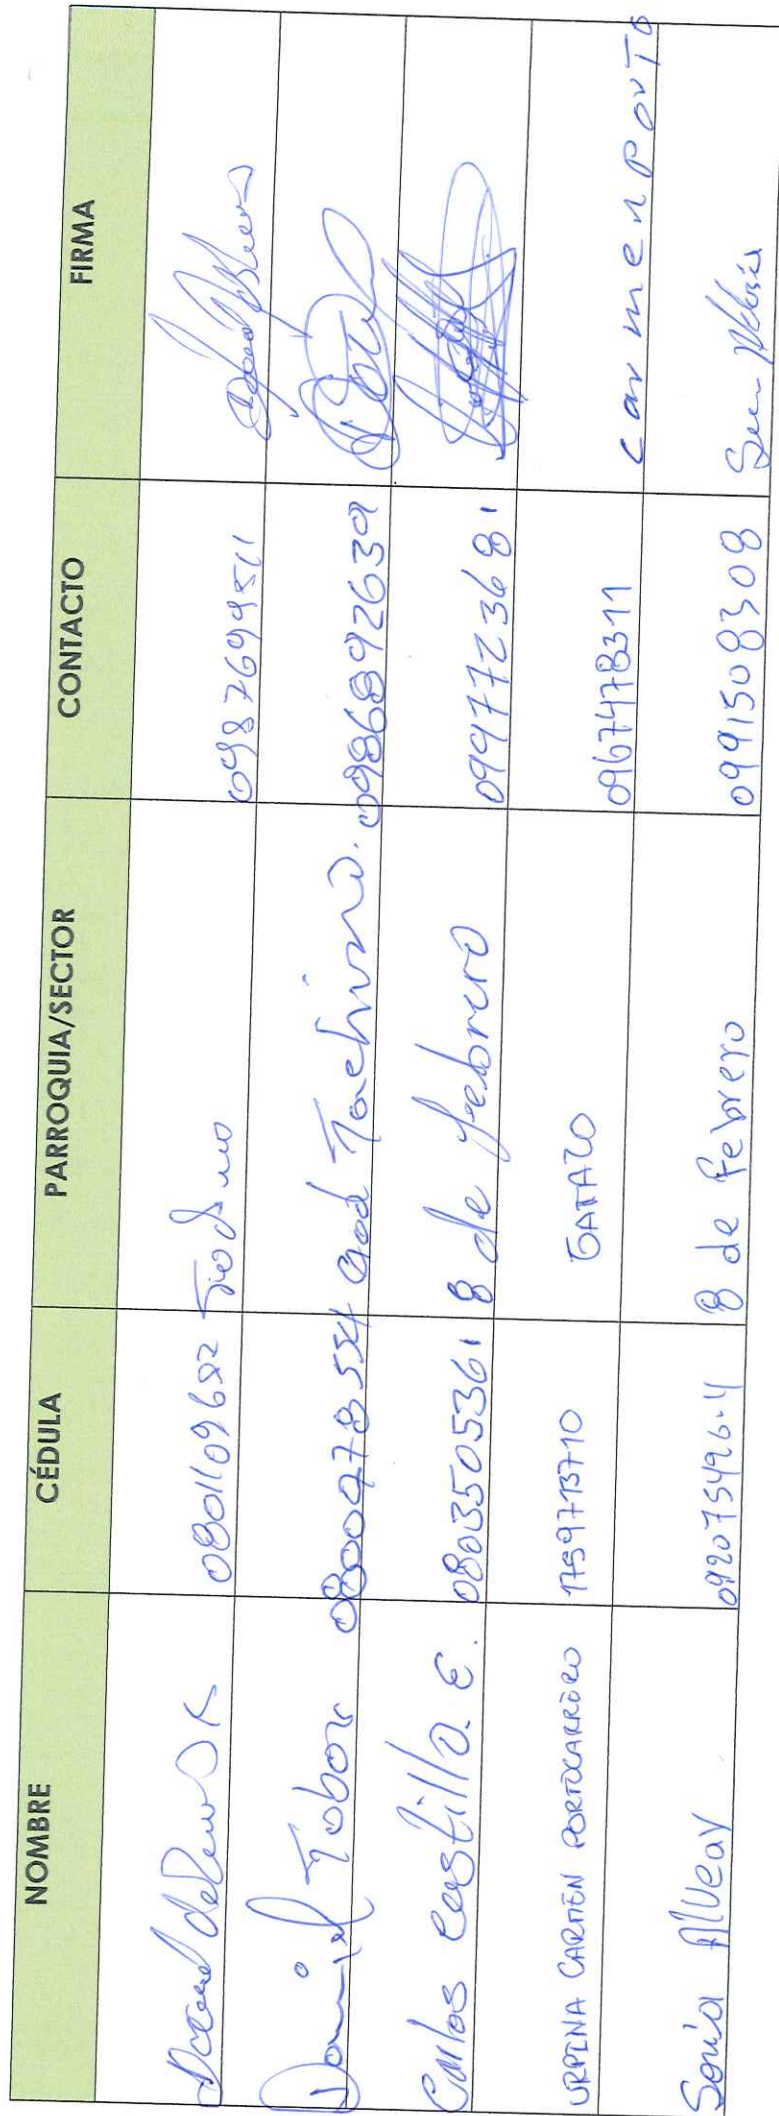 NOMBRE CÉDULA PARROQUIA/SECTOR CONTACTO FIRMA
0801109682 0987699511
Daniel Tobar 0800978554 Gad Tachina. 0986892639
Carlos Castillo. E. 0803505361 8 de febrero 0997723681
URPINA CARMEN PORTOCARRERO 1759713710 GATAZO 0967478311 carmen porto
Sonia Alvear 092075496-4 8 de Febrero 0991508308